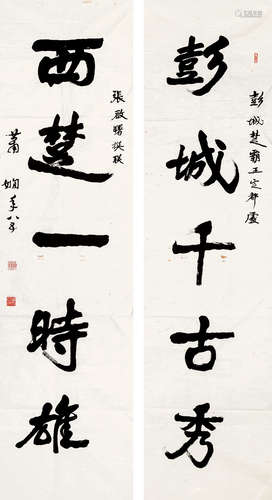 彭城千古秀
彭城楚霸王定都處
西楚一時雄
張啟曙撰联
蕭嫻年八孚